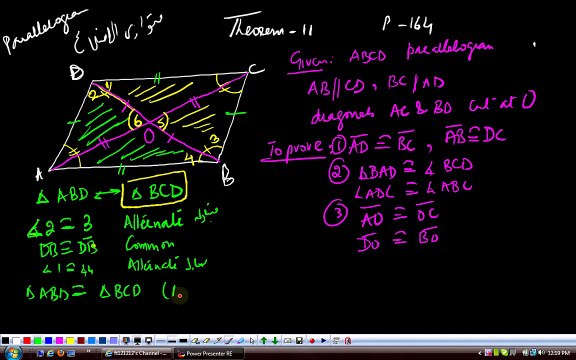 Parallelogram
Theorem - 11
P - 164
Given: ABCD parallelogram
AB//CD, BC//AD
diagonals AC & BD cut at O
To prove: ① AD ≅ BC, AB ≅ DC
② ∡BAD ≅ ∡BCD
∠ADC ≅ ∠ABC
③ AO ≅ OC
DO ≅ BO
D C
2 1
6 5
O
3
4
A B
△ABD ↔ △BCD
∡2 ≅ 3 Alternate
DB ≅ DB Common
∡1 ≅ ∡4 Alternate
△ABD ≅ △BCD (
ft121212's Channel - ...
Power Presenter RE
12:19 PM